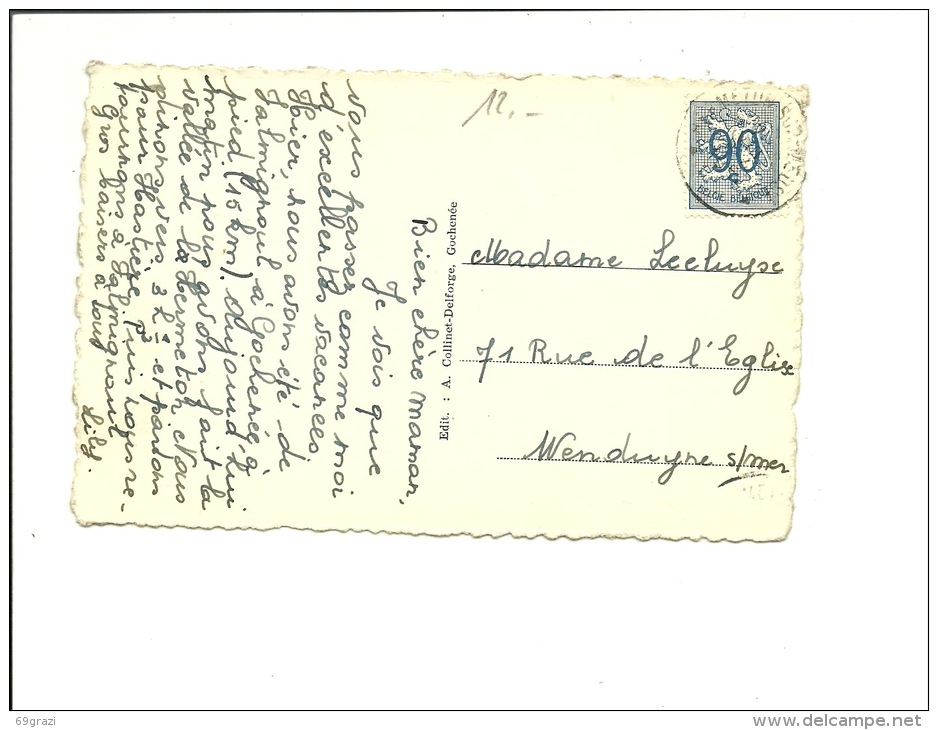 12,-
Bien chère maman,
Je vois que
vous passez comme moi
d'excellentes vacances.
Hier, nous avons été de
Falmignoul à Gochenée à
pied (15 km). Aujourd'hui
matin nous avons fait la
vallée de la Hermeton. Nous
vers 3 h et partons
pour Hastière, puis nous re-
tournons à Falmignoul
Gros baisers à tous
Lily.
Edit. : A. Collinet-Delforge, Gochenée
90
c
BELGIE BELGIQUE
Madame Leeluyse
71 Rue de l'Eglise
Wenduyne s/mer
69grazi
delcampe.net